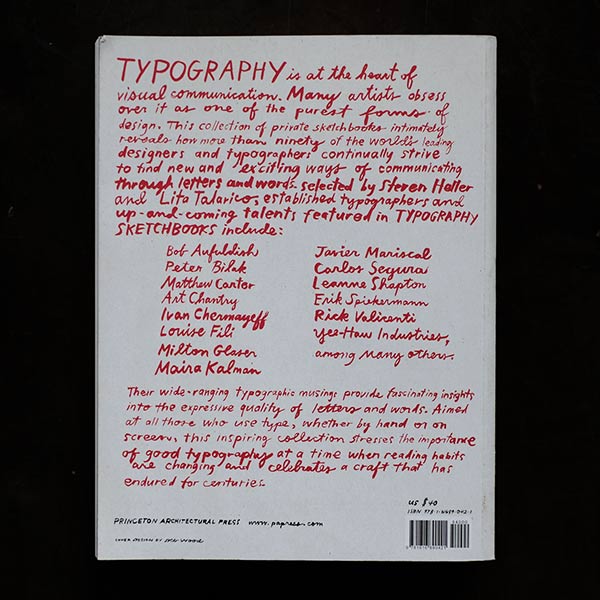 TYPOGRAPHY is at the heart of
visual communication. Many artists obsess
over it as one of the purest forms of
design. This collection of private sketchbooks intimately
reveals how more than ninety of the world's leading
designers and typographers continually strive
to find new and exciting ways of communicating
through letters and words. selected by Steven Heller
and Lita Talarico, established typographers and
up-and-coming talents featured in TYPOGRAPHY
SKETCHBOOKS include:
Bob Aufuldish
Peter Bilak
Matthew Carter
Art Chantry
Ivan Chermayeff
Louise Fili
Milton Glaser
Maira Kalman
Javier Mariscal
Carlos Segura
Leanne Shapton
Erik Spiekermann
Rick Valicenti
Yee-Haw Industries,
among many others.
Their wide-ranging typographic musings provide fascinating insights
into the expressive quality of letters and words. Aimed
at all those who use type, whether by hand or on
screen, this inspiring collection stresses the importance
of good typography at a time when reading habits
are changing and celebrates a craft that has
endured for centuries.
US $40
ISBN 978-1-61689-042-1
54000
PRINCETON ARCHITECTURAL PRESS www.papress.com
9 781616 890421
COVER DESIGN BY